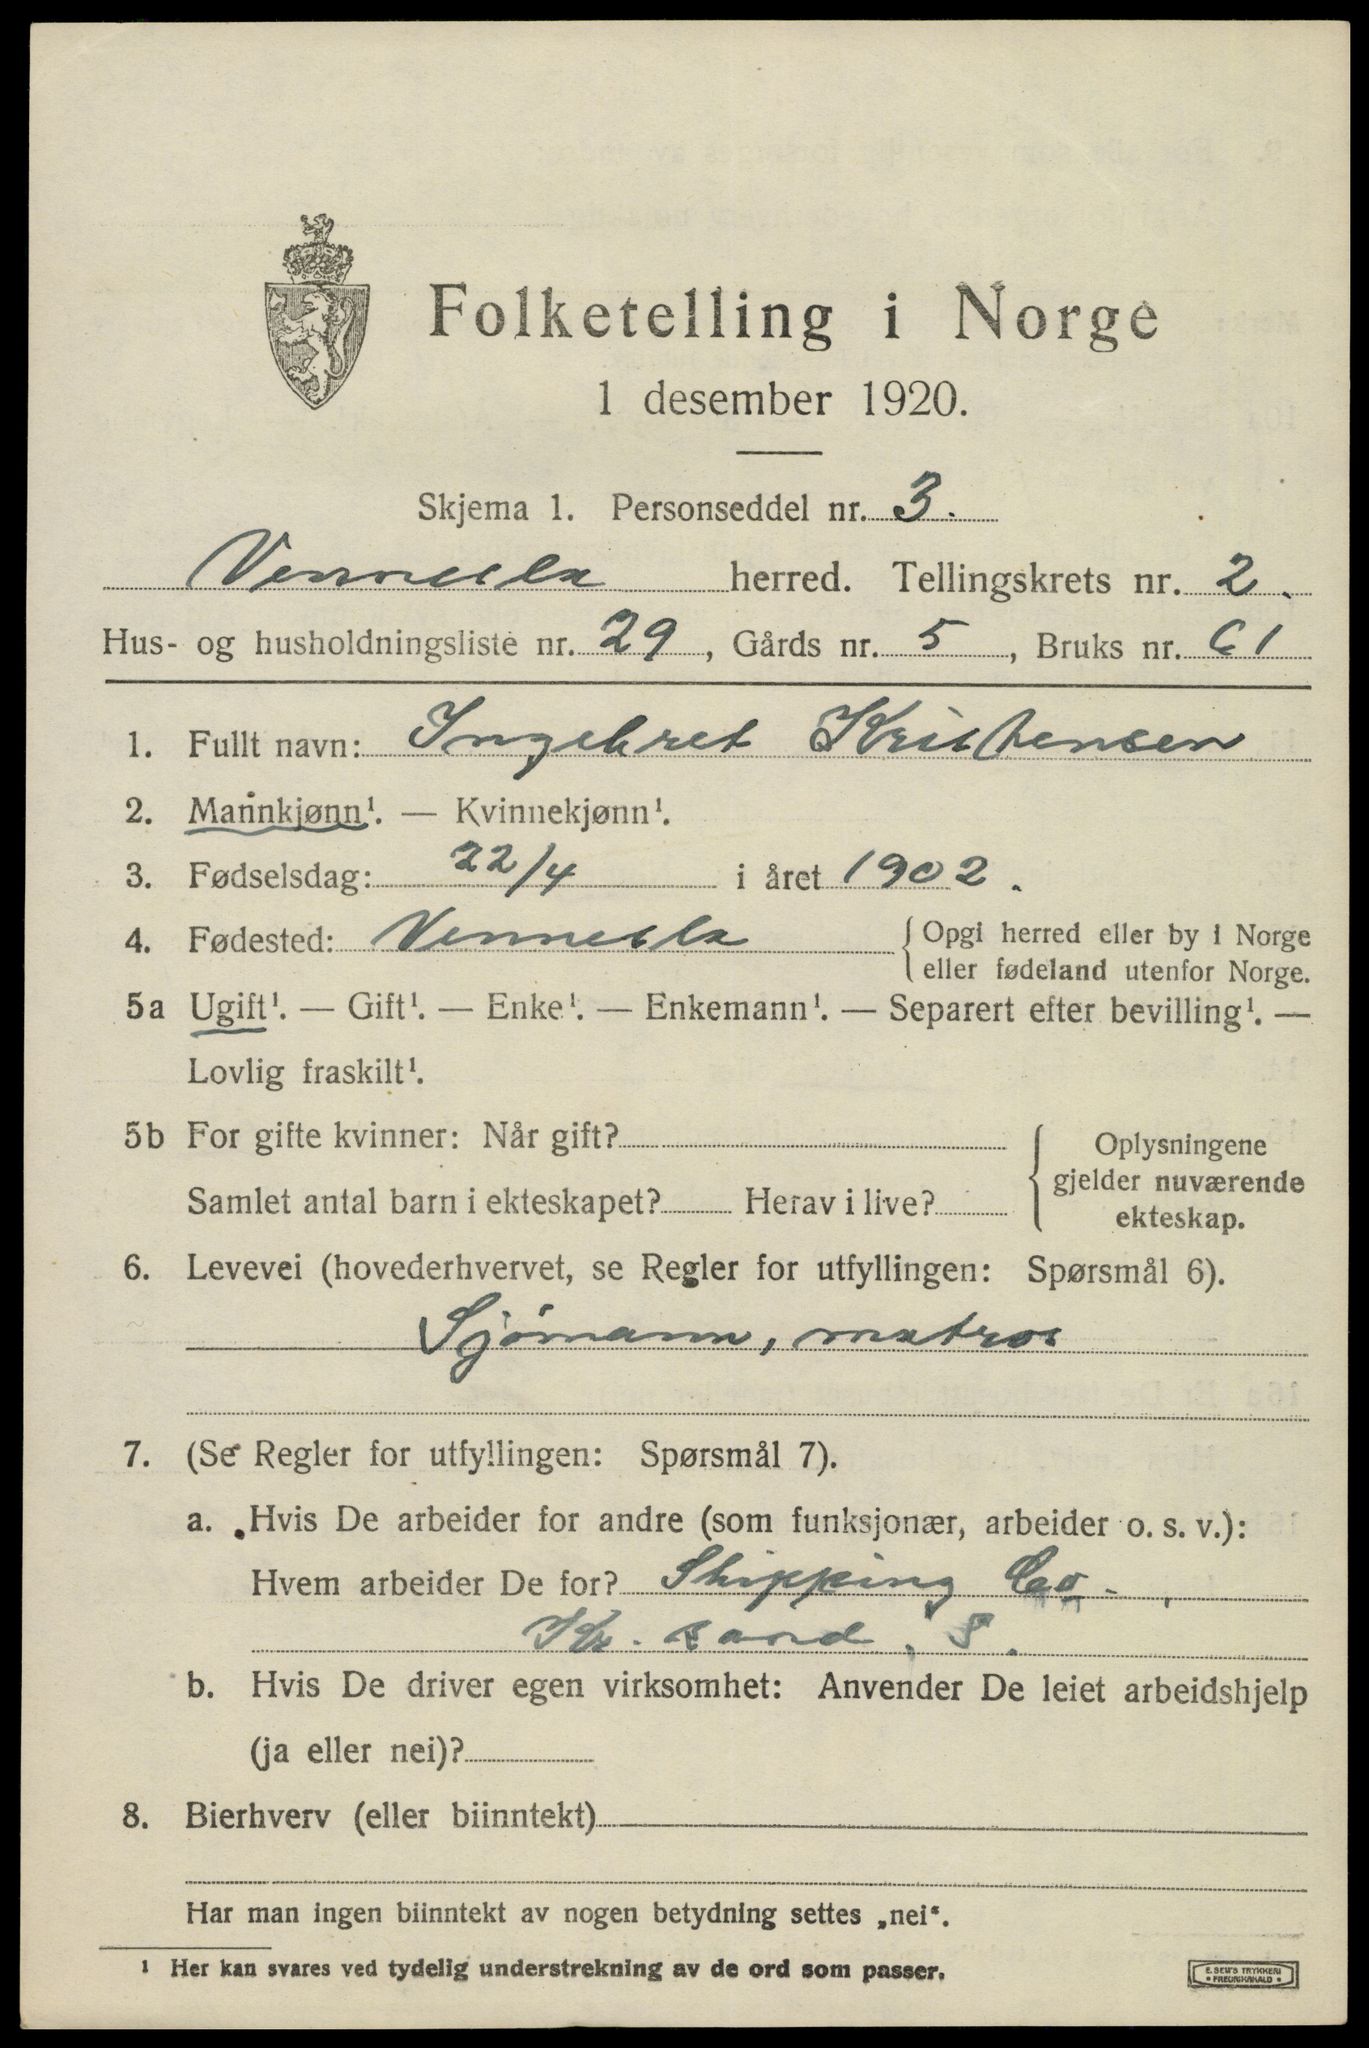 Folketelling i Norge
1 desember 1920.
Skjema 1. Personseddel nr. 3.
Vennesla herred. Tellingskrets nr. 2.
Hus- og husholdningsliste nr. 29, Gårds nr. 5, Bruks nr. 61
1. Fullt navn: Ingebret Kristensen
2. Mannkjønn¹. — Kvinnekjønn¹.
3. Fødselsdag: 22/4 i året 1902.
4. Fødested: Vennesla {Opgi herred eller by i Norge
eller fødeland utenfor Norge.
5a Ugift¹. — Gift¹. — Enke¹. — Enkemann¹. — Separert efter bevilling¹. —
Lovlig fraskilt¹.
5b For gifte kvinner: Når gift? { Oplysningene
gjelder nuværende
Samlet antal barn i ekteskapet? Herav i live?
ekteskap.
6. Levevei (hovederhvervet, se Regler for utfyllingen: Spørsmål 6).
Sjømann, matros
7. (Se Regler for utfyllingen: Spørsmål 7).
a. Hvis De arbeider for andre (som funksjonær, arbeider o. s. v.):
Hvem arbeider De for? Shipping Co.,
Kr.sand. S.
b. Hvis De driver egen virksomhet: Anvender De leiet arbeidshjelp
(ja eller nei)?
8. Bierhverv (eller biinntekt)
Har man ingen biinntekt av nogen betydning settes „nei“.
¹ Her kan svares ved tydelig understrekning av de ord som passer.
E. SEM'S TRYKKERI
• FREDRIKSHALD •